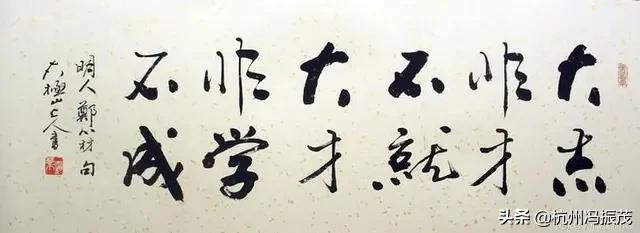 大志
非才
不就
大才
非学
不成
明人鄭心材句
极山人書
头条 @杭州冯振茂